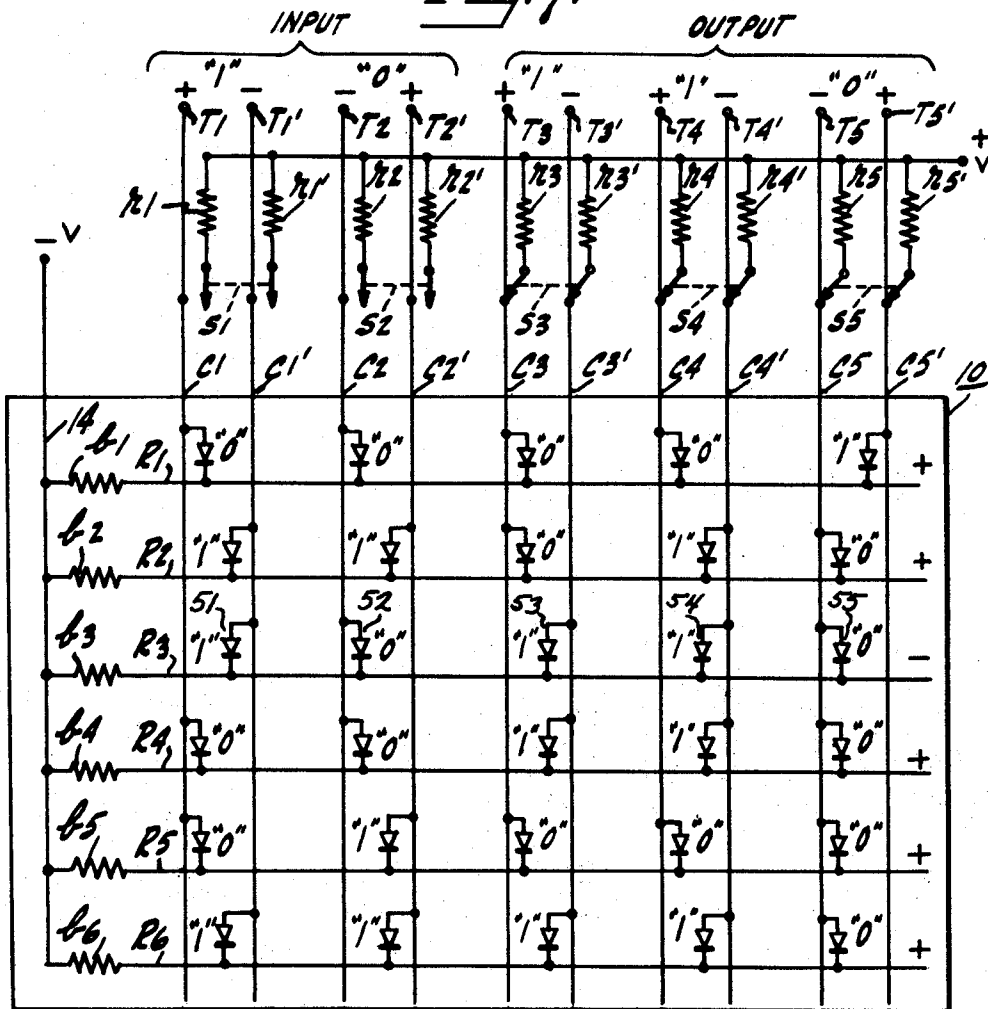 INPUT OUTPUT
+ "1" - - "0" + + "1" - + "1" - - "0" +
T1 T1' T2 T2' T3 T3' T4 T4' T5 T5'
+
V
r1 r1' r2 r2' r3 r3' r4 r4' r5 r5'
- V
S1 S2 S3 S4 S5
C1 C1' C2 C2' C3 C3' C4 C4' C5 C5' 10
14
b1 R1 "0" "0" "0" "0" "1" +
b2 R2 "1" "1" "0" "1" "0" +
51 52 53 54 55
b3 R3 "1" "0" "1" "1" "0" -
b4 R4 "0" "0" "1" "1" "0" +
b5 R5 "0" "1" "0" "0" "0" +
b6 R6 "1" "1" "1" "1" "0" +